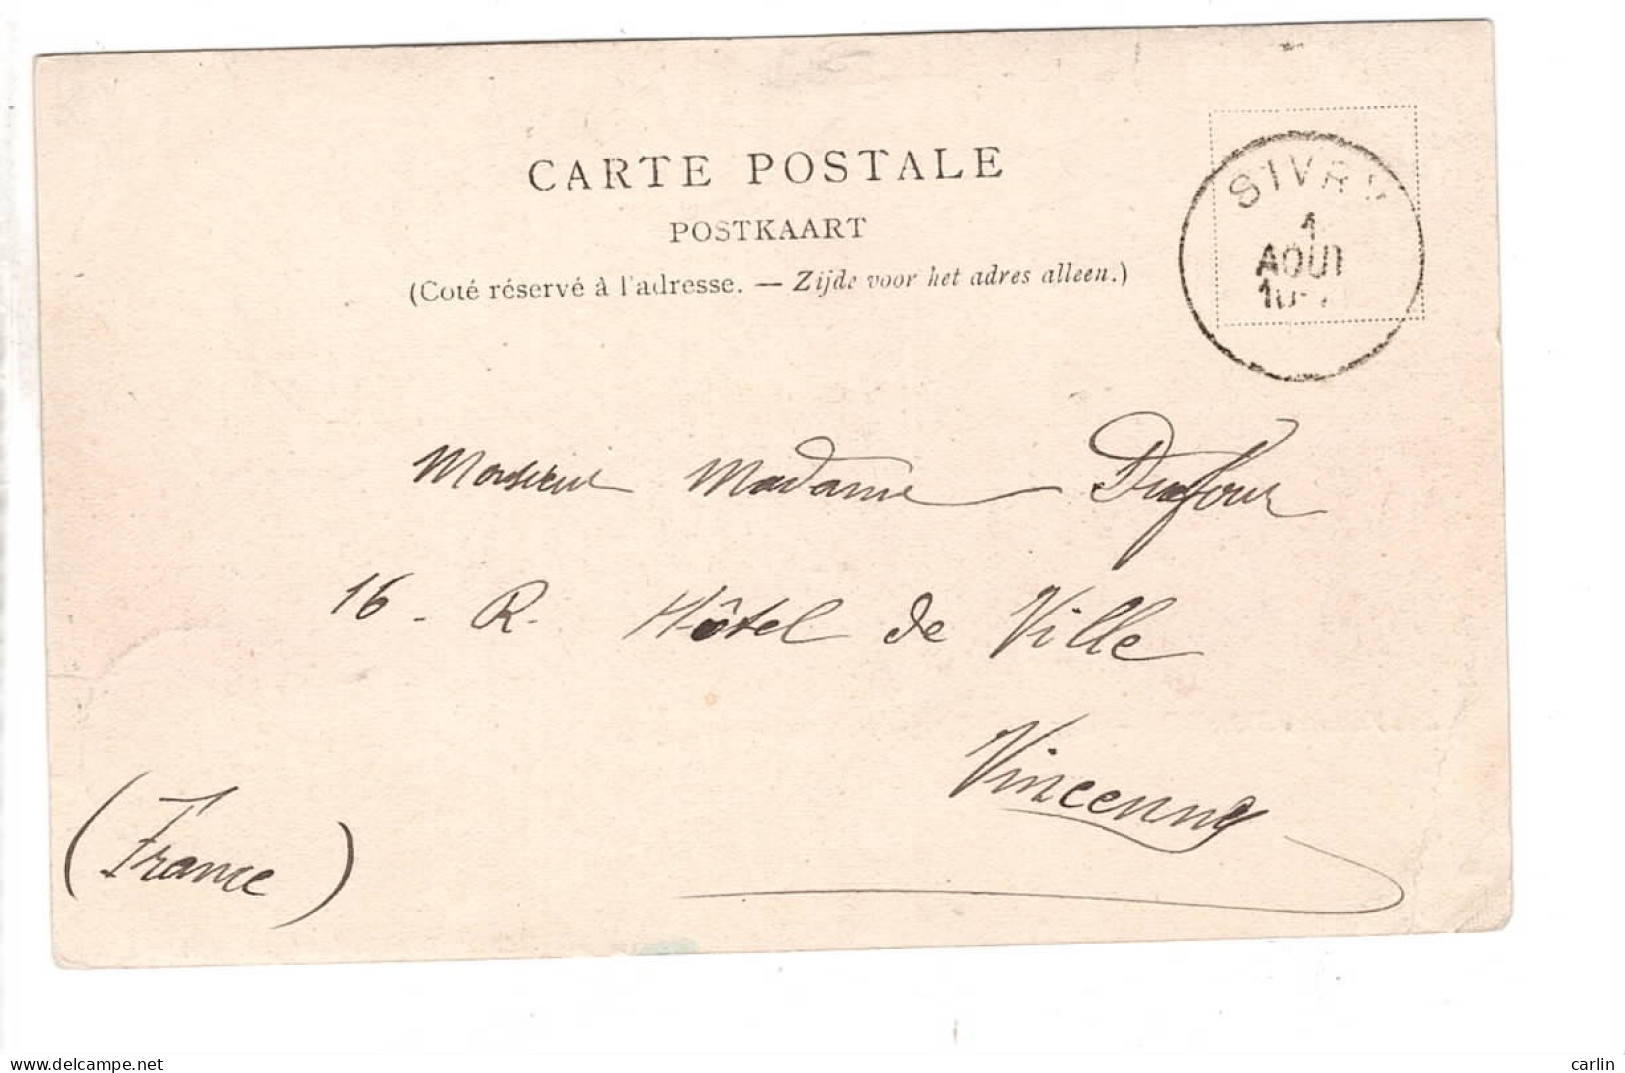 CARTE POSTALE
POSTKAART
(Coté réservé à l'adresse. — Zijde voor het adres alleen.)
SIVRY
1
AOUT
Monsieur Madame Dufour
16 - R. Hôtel de Ville
Vincennes
(France)
delcampe.net
carlin